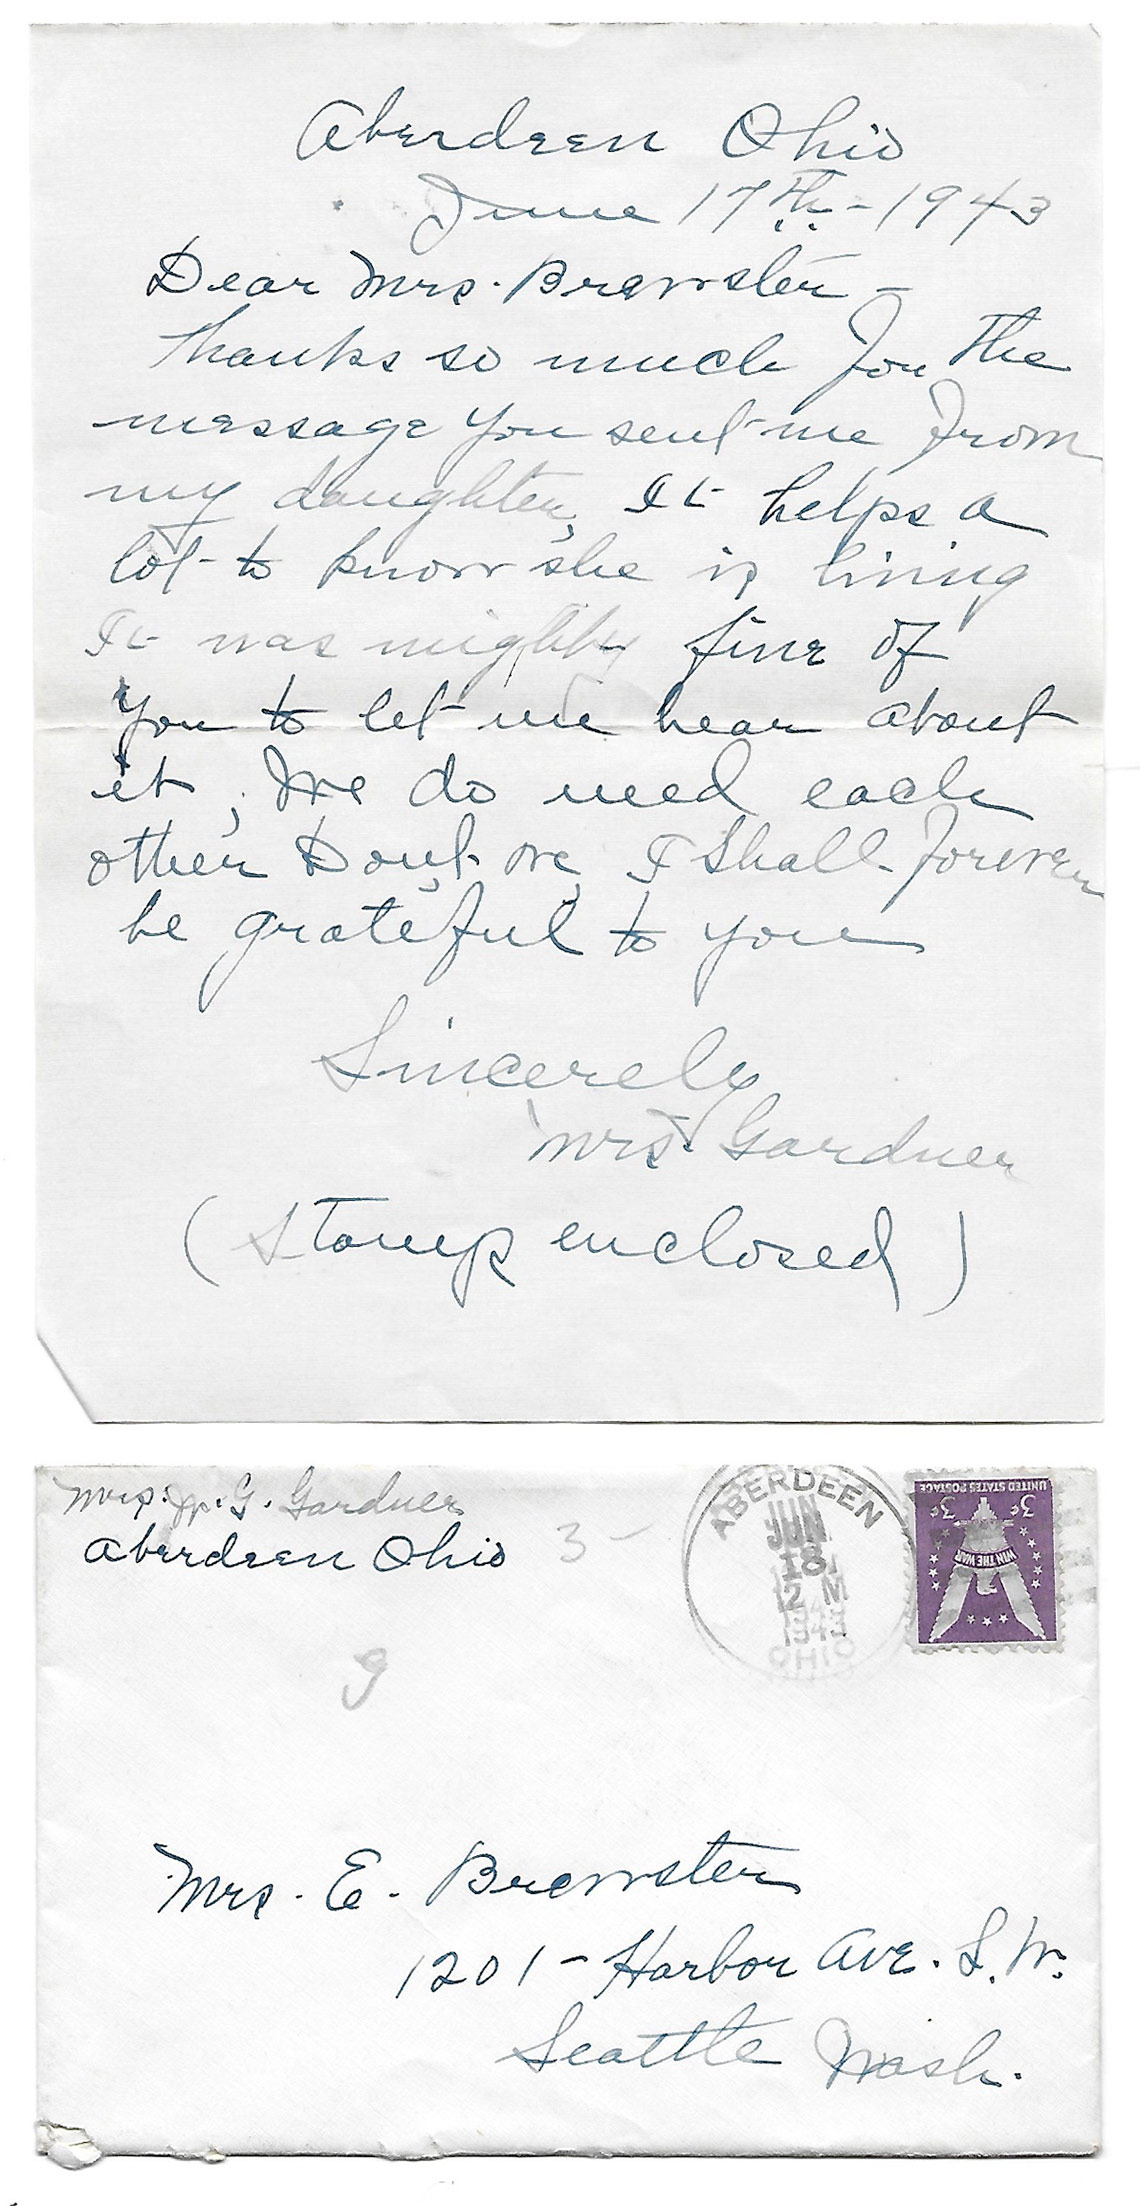 Aberdeen Ohio
June 17th - 1943
Dear Mrs. Brewster -
Thanks so much for the
message you sent me from
my daughter, It helps a
lot to know she is living
It was mighty fine of
you to let me hear about
it, We do need each
other Don't we, I shall forever
be grateful to you
Sincerely
Mrs. Gardner
(Stamp enclosed)
Mrs. G. Gardner
Aberdeen Ohio
3 -
ABERDEEN
JUN
18
12 M
1943
OHIO
UNITED STATES POSTAGE
3¢ 3¢
WIN THE WAR
9
Mrs. E. Brewster
1201 - Harbor Ave. S.W.
Seattle Wash.